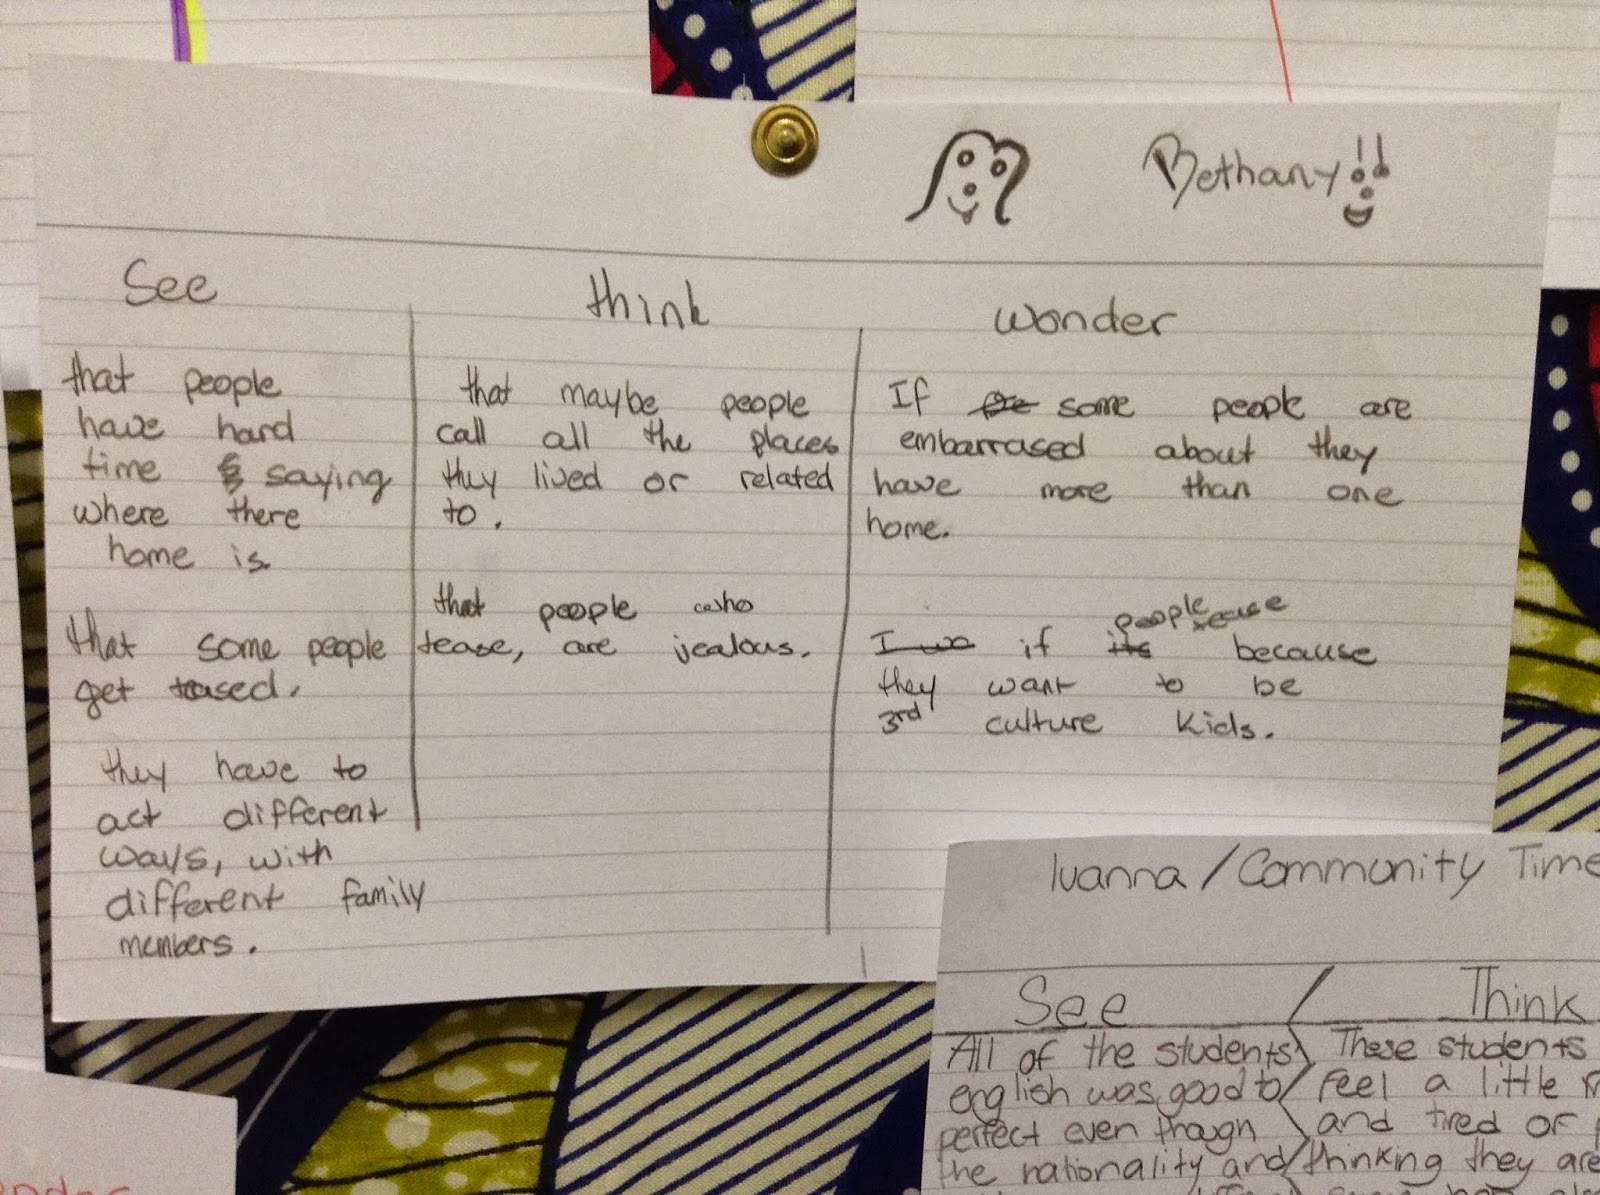 Bethany!!
See
that people
have hard
time saying
where there
home is.
that some people
get teased.
they have to
act different
ways, with
different family
members.
think
that maybe people
call all the places
they lived or related
to.
that people who
tease, are jealous.
wonder
If some people are
embarrased about they
have more than one
home.
if people tease because
they want to be
3rd culture kids.
Ivanna / Community Time
See / Think
All of the students
english was good to
perfect even though
the nationality and
These students
Feel a little
and tired of
thinking they are